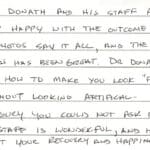 DONATH AND HIS STAFF A
HAPPY WITH THE OUTCOME
HOTOS SAY IT ALL, AND THE
N HAS BEEN GREAT. DR DONA
HOW TO MAKE YOU LOOK "F
HOUT LOOKING ARTIFICAL-
YOU COULD NOT ASK F
STAFF IS WONDERFUL, AND H
T YOUR RECOVERY AND HAPPIN